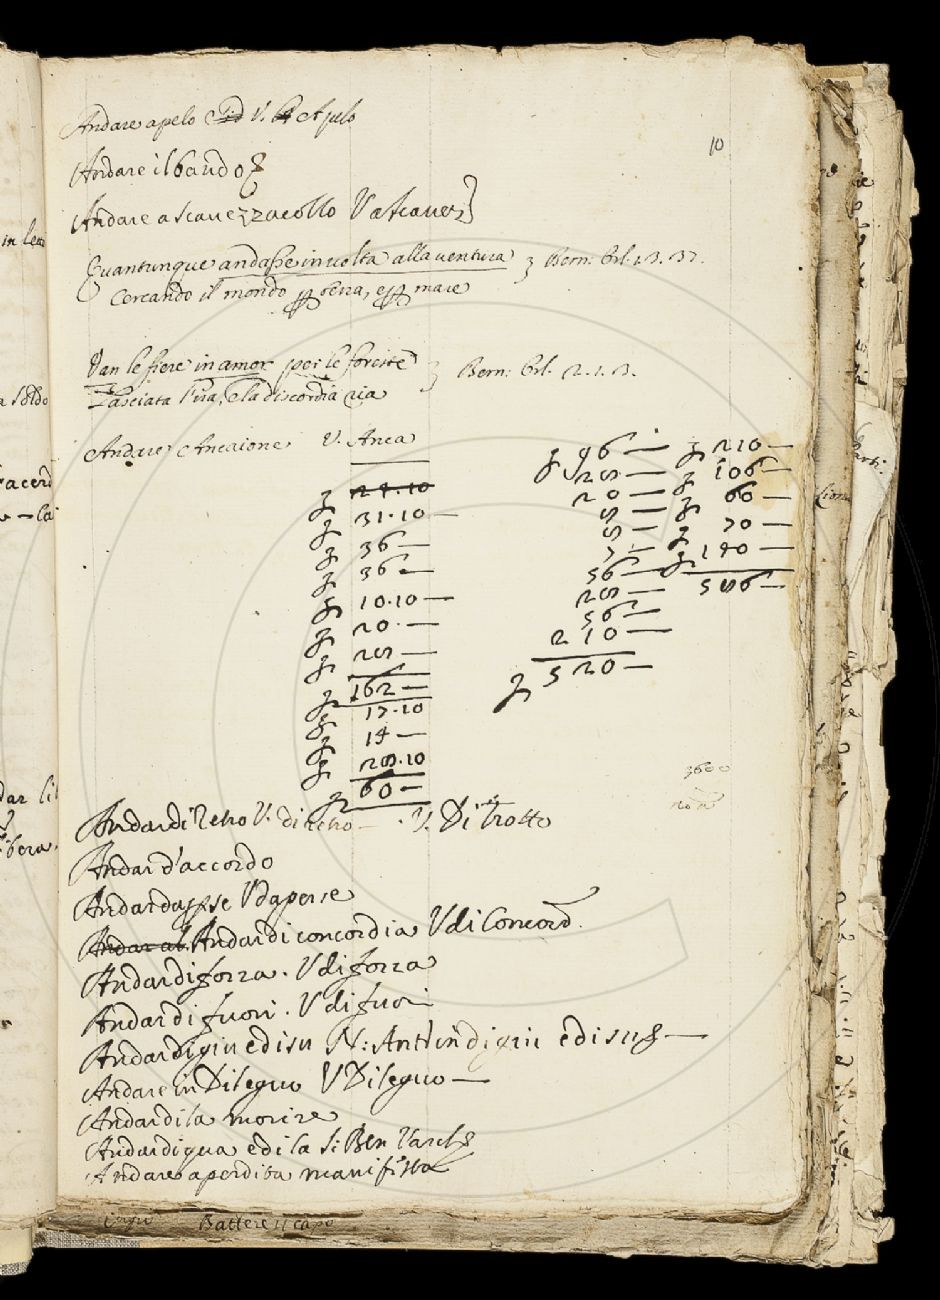 10
Andare a pelo V. A pelo
Andare il bando
Andare a scauezzacollo V a scauez
Quantunque andasse in uolta alla uentura Bern: Orl. 1.3. 37.
Cercando il mondo per terra, e per mare
Van le fiere in amor per le foreste Bern: Orl. 2. 1. 3.
Lasciata l'ira, e la discordia ria
Andare Ancaione V. Anca
31.10 —
36 —
36 —
10.10 —
20. —
28 —
162 —
17.10
14 —
28.10
60 —
96 —
28 —
20 —
8 —
8 —
7 —
56 —
28 —
56 —
210 —
520 —
210 —
106 —
60 —
70 —
140 —
586 —
3600
Andar di retro V. di retro — . V. Di trotto
Andar d'accordo
Andar da per se V da per se
Andar al. Andar di concordia V di Concord.
Andar di forza. V di forza
Andar di fuori. V di fuori
Andar di giu e di su in di giu e di su —
Andare in Dileguo V Dileguo —
Andar di la morire
Andar di qua e di la Ben Varch
Andare a perdita manifesta
Battere il capo